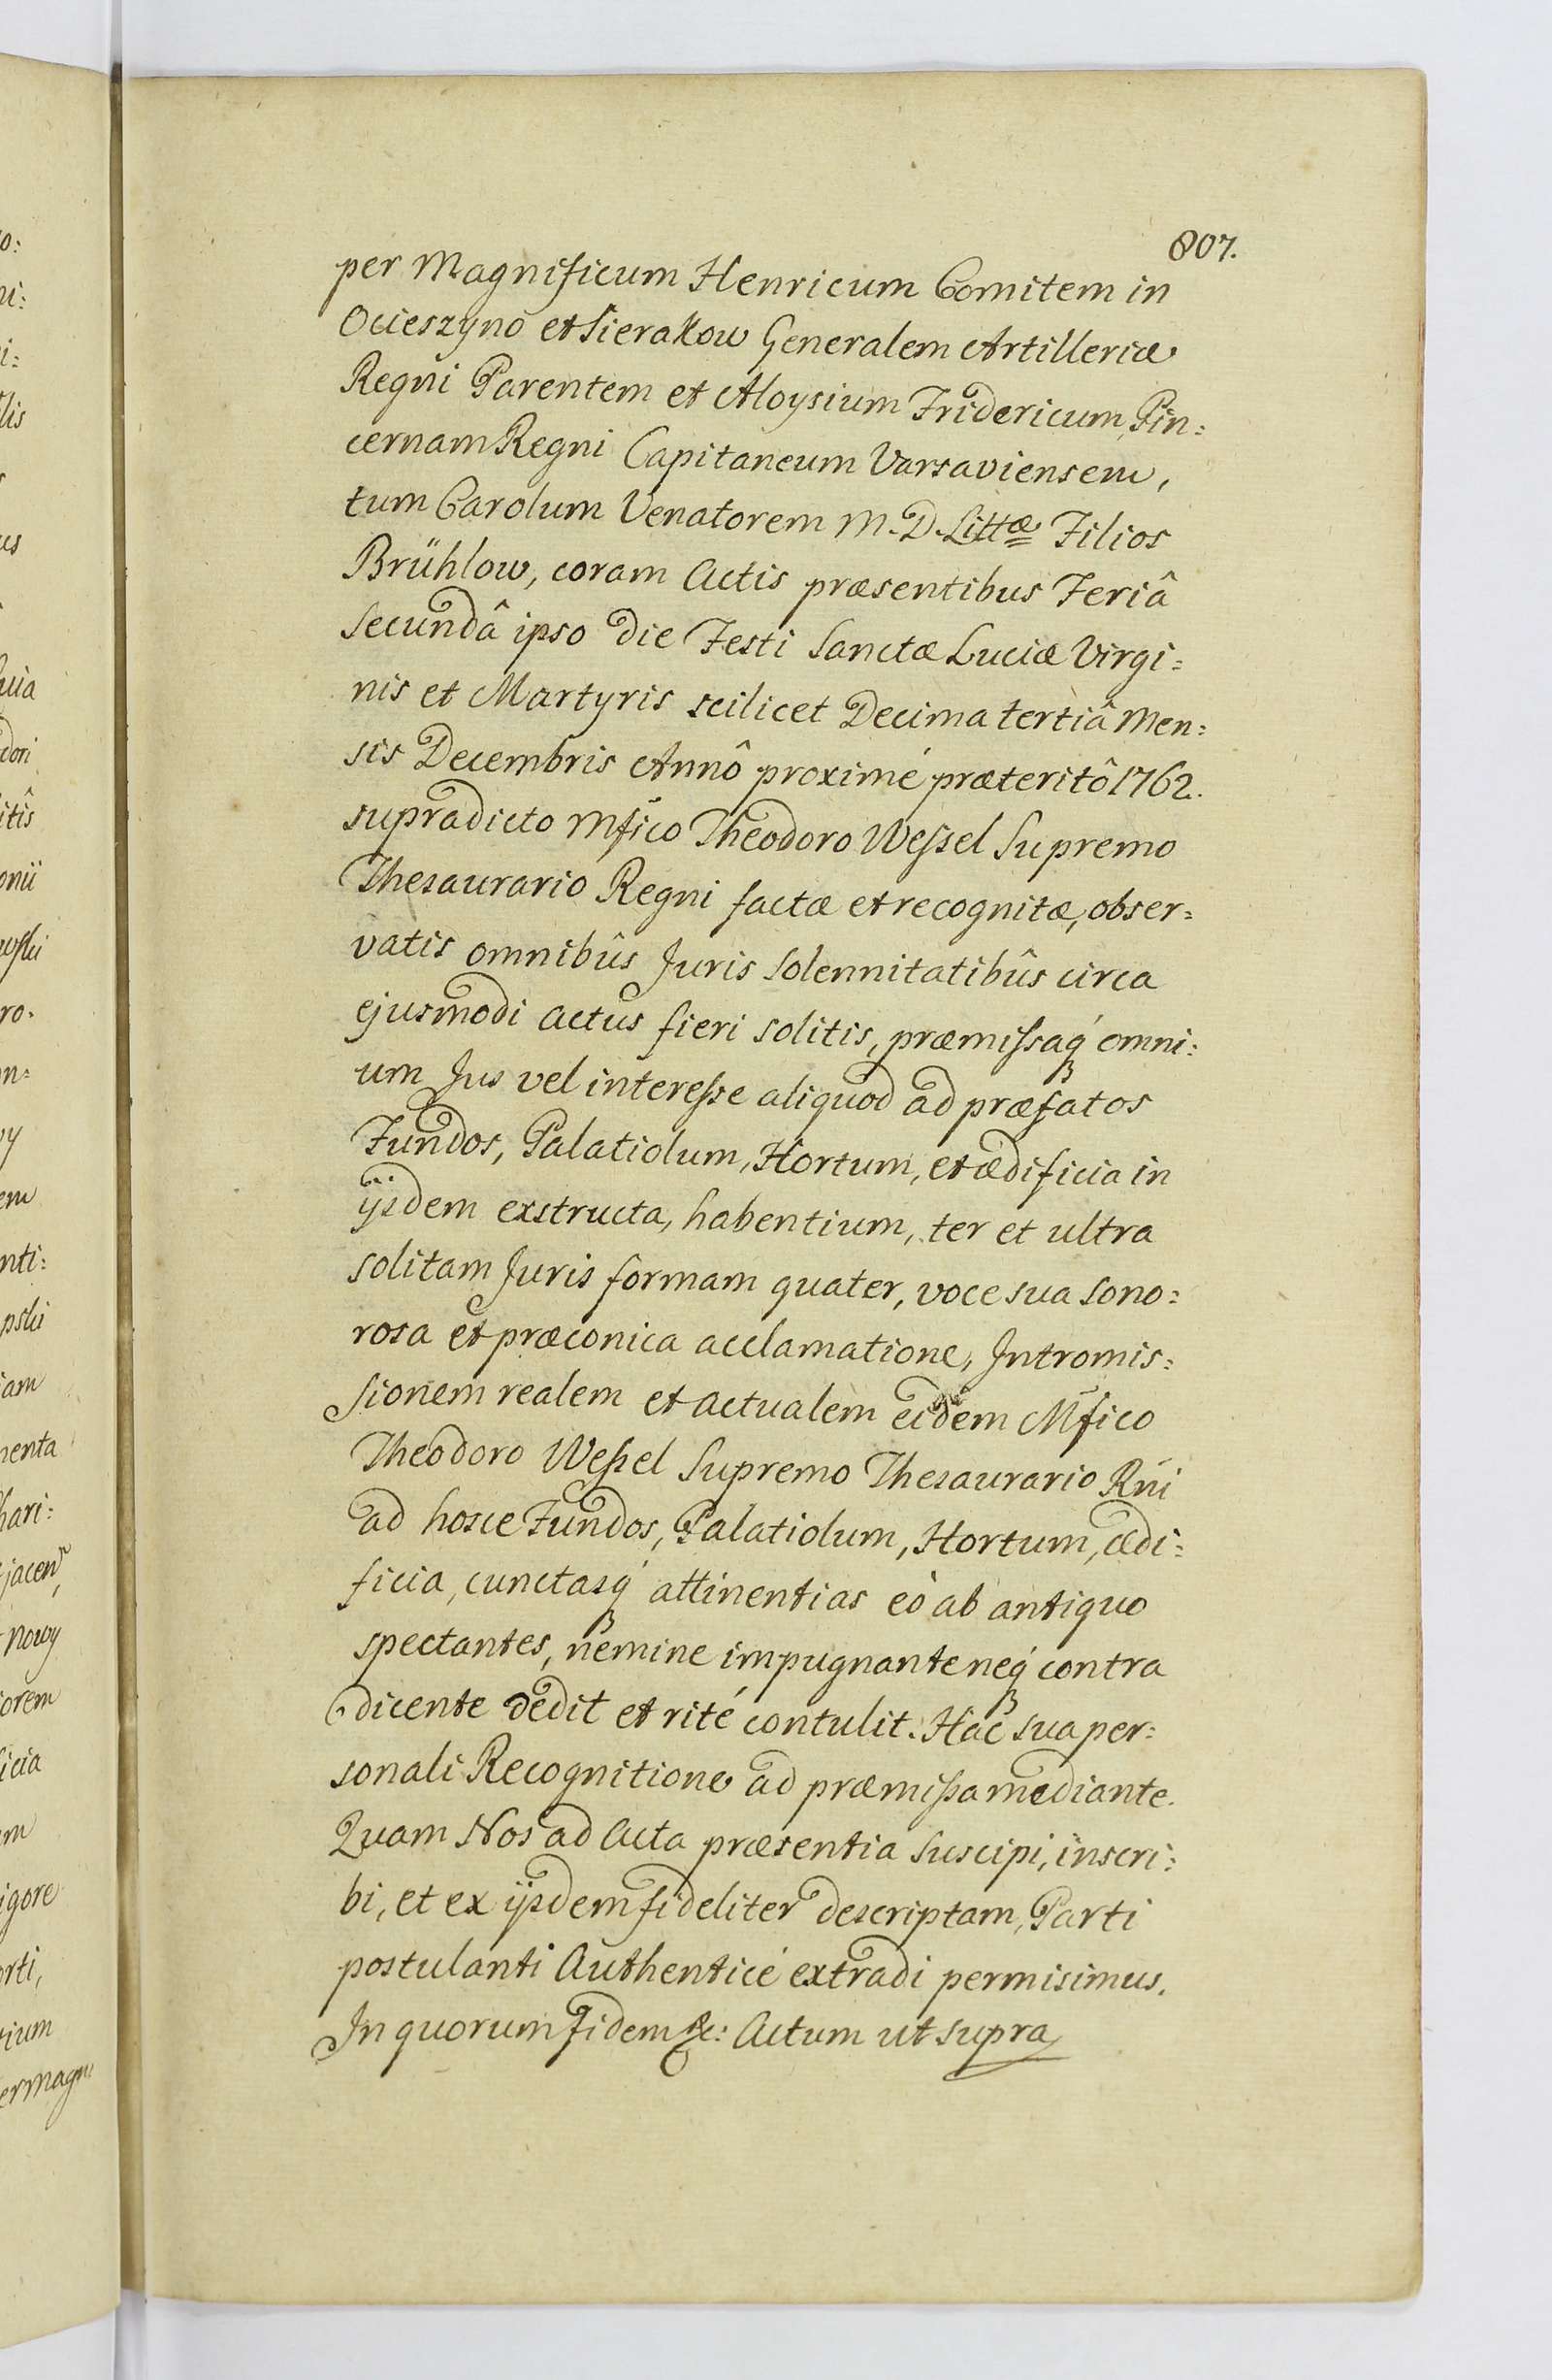 807.
per Magnificum Henricum Comitem in
Ocieszyno et Sierakow Generalem Artilleriæ
Regni Parentem et Aloysium Fridericum, Pin:
cernam Regni Capitaneum Varsaviensem,
tum Carolum Venatorem M. D. Littæ Filios
Brühlow, coram Actis præsentibus Feriâ
Secundâ ipso die Festi Sanctæ Luciæ Virgi:
nis et Martyris scilicet Decima tertiâ Men:
sis Decembris Annô proximé præteritô 1762.
supradicto Mfico Theodoro Wessel Supremo
Thesaurario Regni factæ et recognitæ, obser:
vatis omnibûs Juris Solennitatibûs circa
ejusmodi actus fieri solitis, præmissaq́ omni:
um Jus vel interesse aliquod ad præfatos
Fundos, Palatiolum, Hortum, et ædificia in
ijsdem exstructa, habentium, ter et ultra
solitam Juris formam quater, voce sua sono:
rosa et præconica acclamatione, Intromis:
sionem realem et actualem eidem Mfico
Theodoro Wessel Supremo Thesaurario Rñi
ad hosce Fundos, Palatiolum, Hortum, ædi:
ficia, cunctasq́ attinentias eò ab antiquo
spectantes, nemine impugnante neq́ contra
dicente dedit et rité contulit. Hac sua per:
sonali Recognitione ad præmissa mediante.
Quam Nos ad Acta præsentia suscipi, inscri:
bi, et ex ijsdem fideliter descriptam, Parti
postulanti Authenticé extradi permisimus.
In quorum fidem &c: Actum ut supra